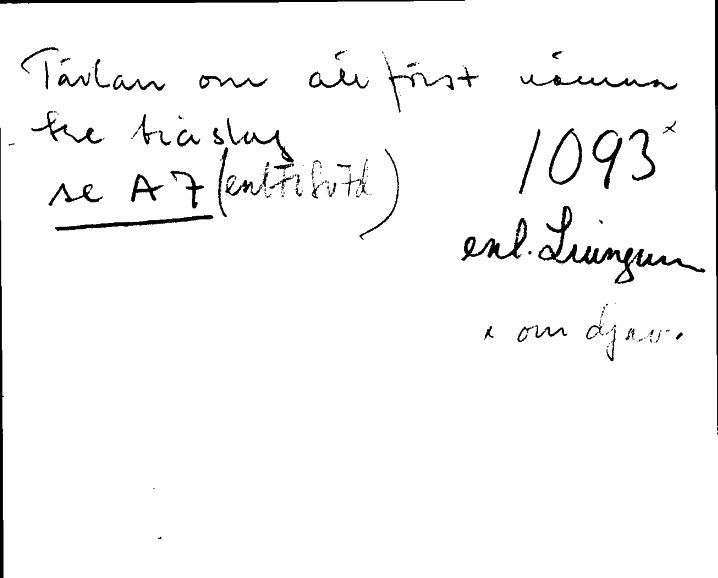 Tävlan om att först nämna
tre träslag
se A7 (enl Tilv7d)
1093 x
enl. Liungman
x om djäv.